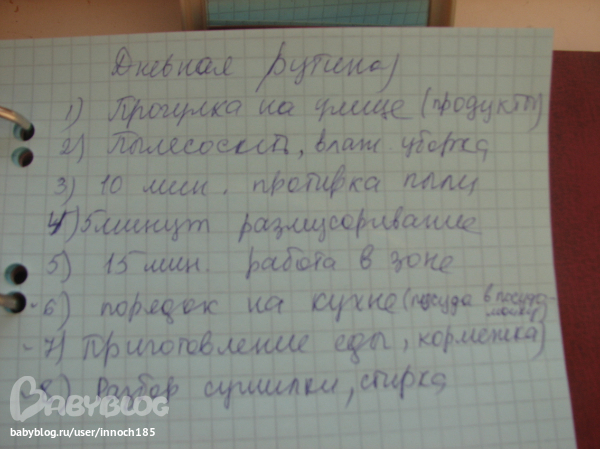 Дневная рутина
1) Прогулка на улице (продукты)
2) Пылесосить, влаж. уборка
3) 10 мин. протирка пыли
4) 5 минут размусоривание
5) 15 мин. работа в зоне
-6) порядок на кухне (посуда в посудо-
мойку)
-7) Приготовление еды, кормежка)
-8) Разбор сушилки, стирка
BABYBLOG
babyblog.ru/user/innoch185